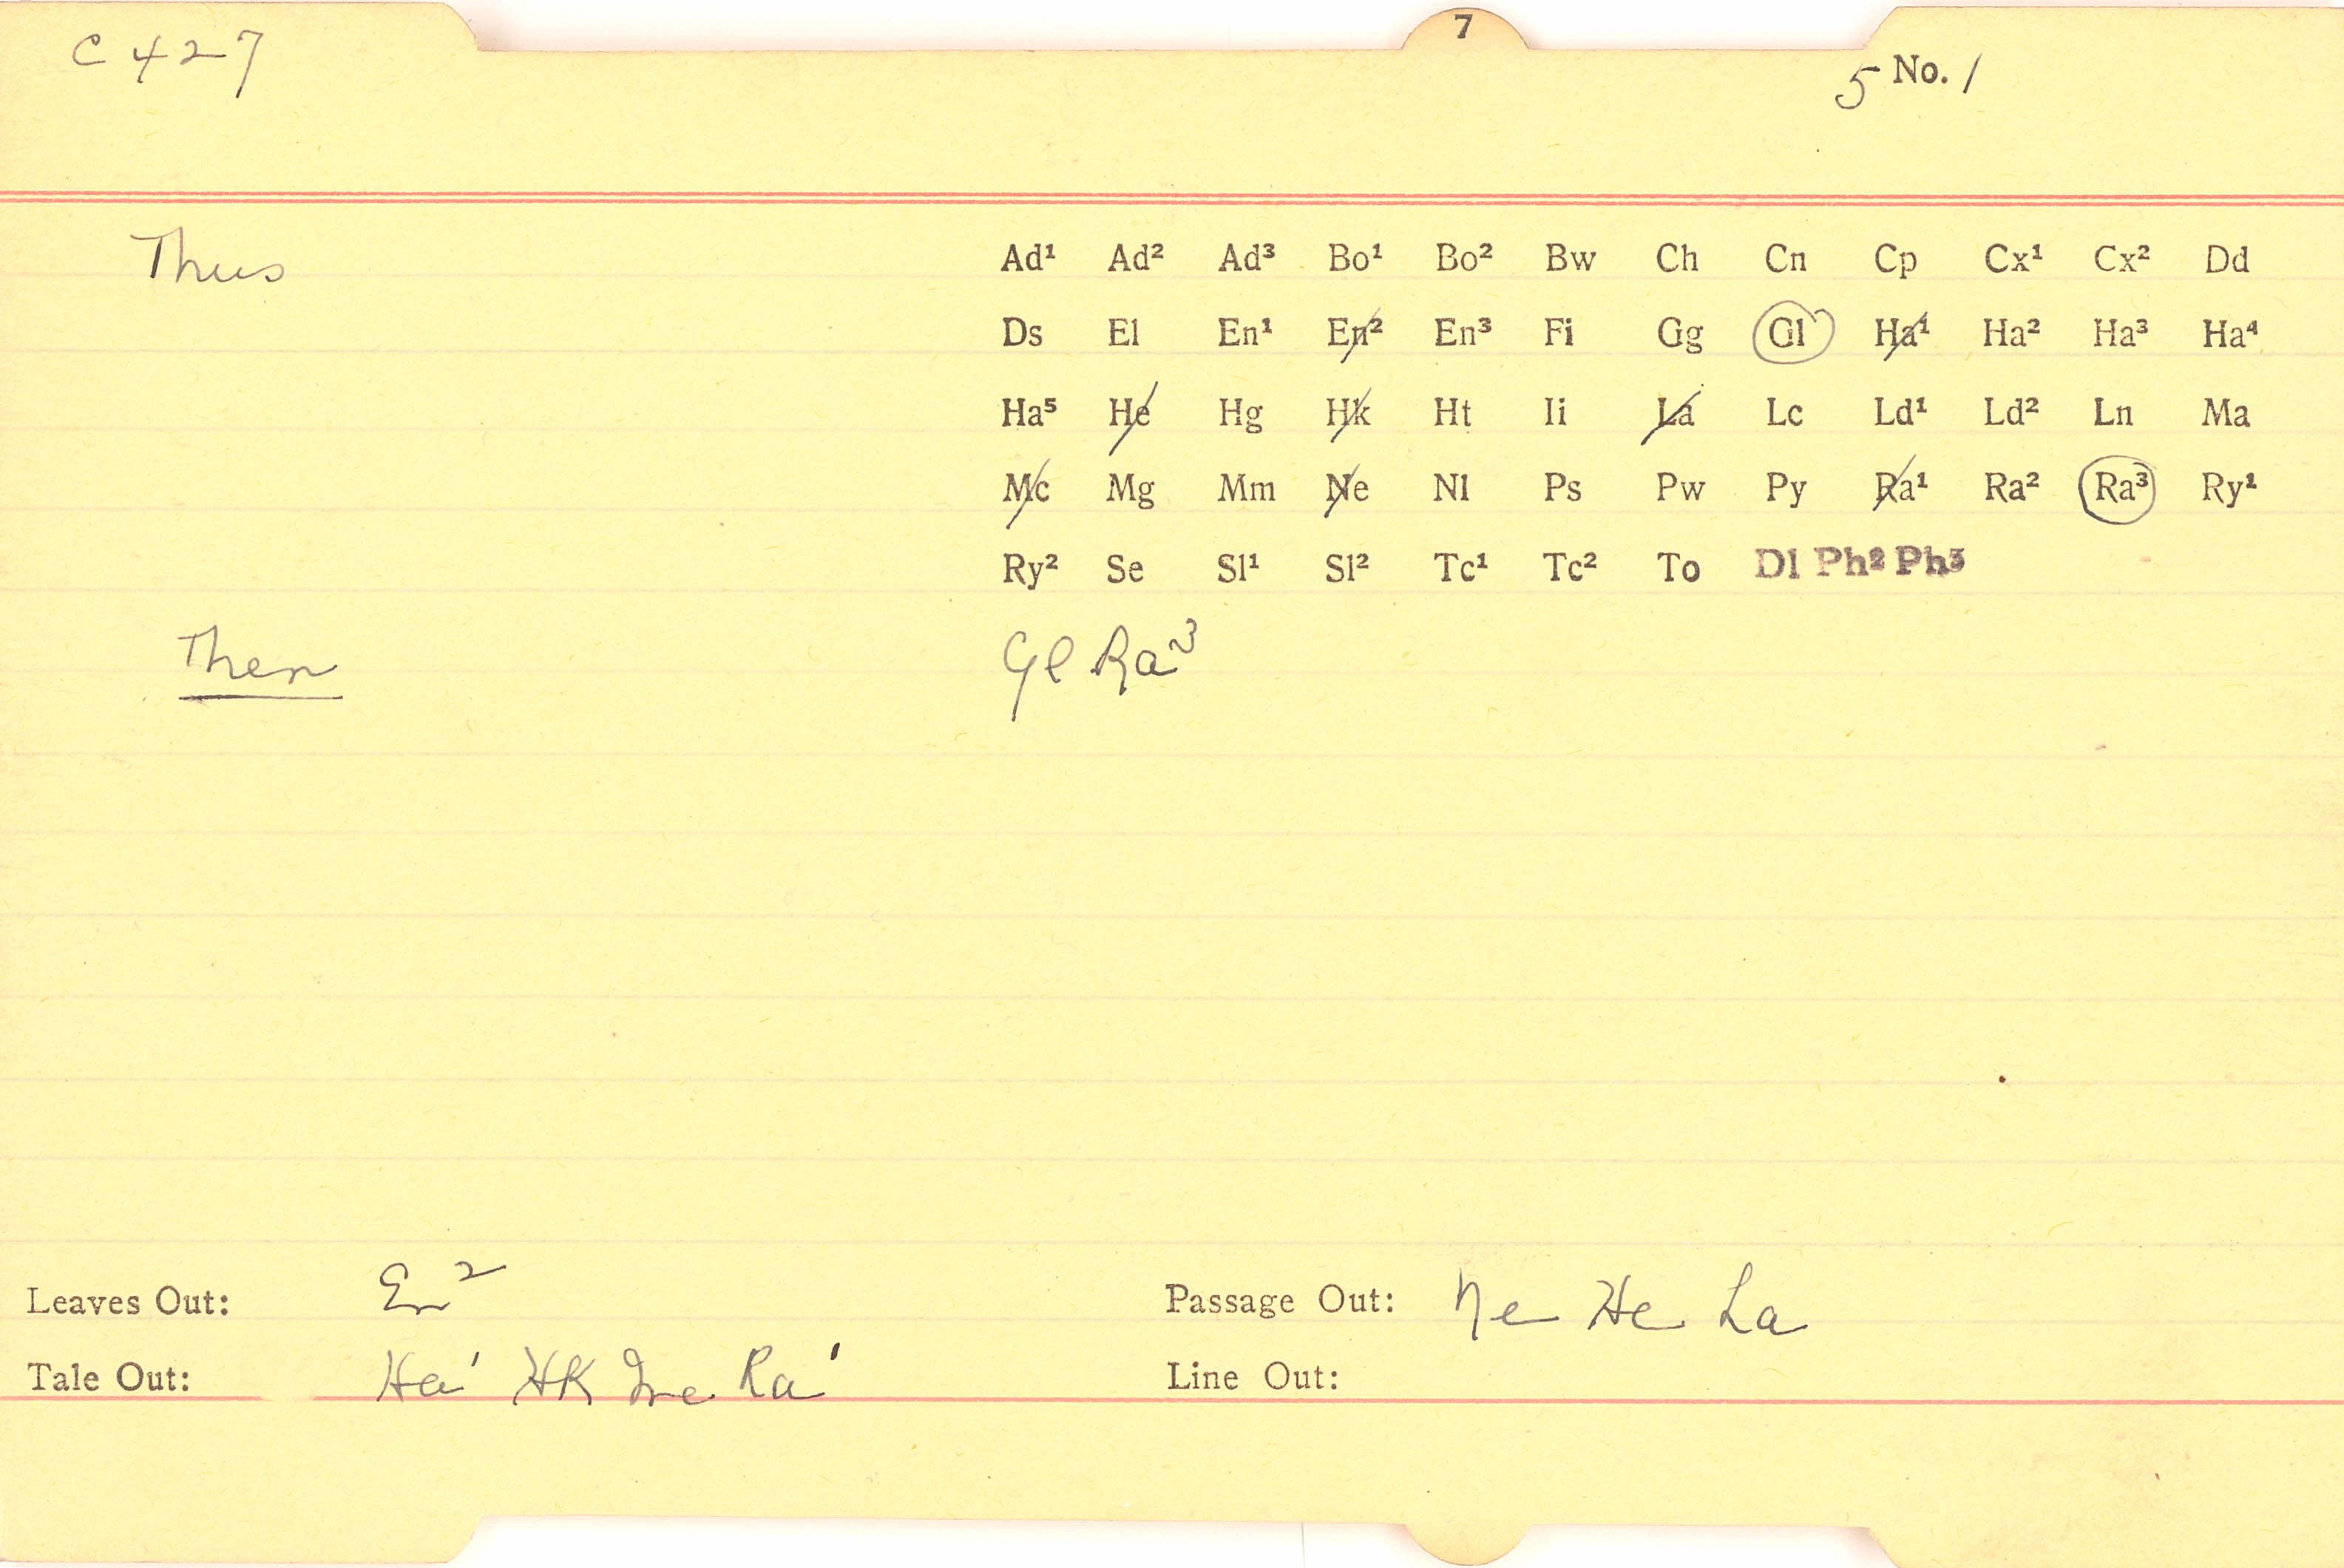 7
C 427
5 No. 1
Thus Ad¹ Ad² Ad³ Bo¹ Bo² Bw Ch Cn Cp Cx¹ Cx² Dd
Ds El En¹ En² En³ Fi Gg Gl Ha¹ Ha² Ha³ Ha⁴
Ha⁵ He Hg Hk Ht Ii La Lc Ld¹ Ld² Ln Ma
Mc Mg Mm Ne Nl Ps Pw Py Ra¹ Ra² Ra³ Ry¹
Ry² Se Sl¹ Sl² Tc¹ Tc² To Dl Ph² Ph³
Then Gl Ra³
Leaves Out: En² Passage Out: Ne He La
Tale Out: Ha¹ Hk Mc Ra¹ Line Out: